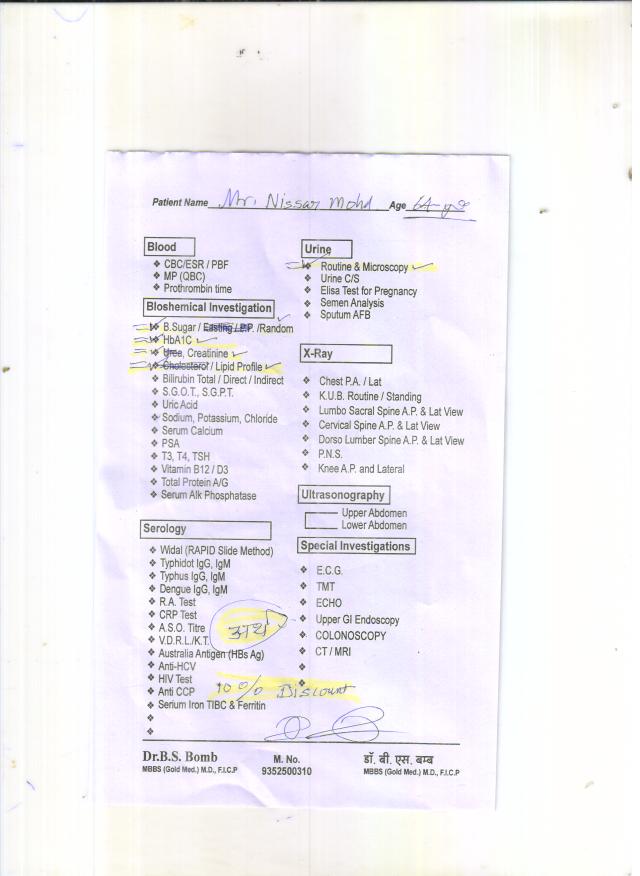 Patient Name Mr. Nissar Mohd. Age 64-yrs
Blood
❖ CBC/ESR / PBF
❖ MP (QBC)
❖ Prothrombin time
Bioshemical Investigation
❖ B.Sugar / Easting / P.P. /Random
❖ HbA1C
❖ Urea, Creatinine
❖ Cholesterol / Lipid Profile
❖ Bilirubin Total / Direct / Indirect
❖ S.G.O.T., S.G.P.T.
❖ Uric Acid
❖ Sodium, Potassium, Chloride
❖ Serum Calcium
❖ PSA
❖ T3, T4, TSH
❖ Vitamin B12 / D3
❖ Total Protein A/G
❖ Serum Alk Phosphatase
Serology
❖ Widal (RAPID Slide Method)
❖ Typhidot IgG, IgM
❖ Typhus IgG, IgM
❖ Dengue IgG, IgM
❖ R.A. Test
❖ CRP Test
❖ A.S.O. Titre
❖ V.D.R.L./K.T.
❖ Australia Antigen (HBs Ag)
❖ Anti-HCV
❖ HIV Test
❖ Anti CCP
❖ Serium Iron TIBC & Ferritin
❖
❖
Urine
❖ Routine & Microscopy
❖ Urine C/S
❖ Elisa Test for Pregnancy
❖ Semen Analysis
❖ Sputum AFB
X-Ray
❖ Chest P.A. / Lat
❖ K.U.B. Routine / Standing
❖ Lumbo Sacral Spine A.P. & Lat View
❖ Cervical Spine A.P. & Lat View
❖ Dorso Lumber Spine A.P. & Lat View
❖ P.N.S.
❖ Knee A.P. and Lateral
Ultrasonography
Upper Abdomen
Lower Abdomen
Special Investigations
❖ E.C.G.
❖ TMT
❖ ECHO
❖ Upper GI Endoscopy
❖ COLONOSCOPY
❖ CT / MRI
❖
❖
10% Discount
Dr.B.S. Bomb M. No. डॉ. बी. एस. बम्ब
MBBS (Gold Med.) M.D., F.I.C.P 9352500310 MBBS (Gold Med.) M.D., F.I.C.P